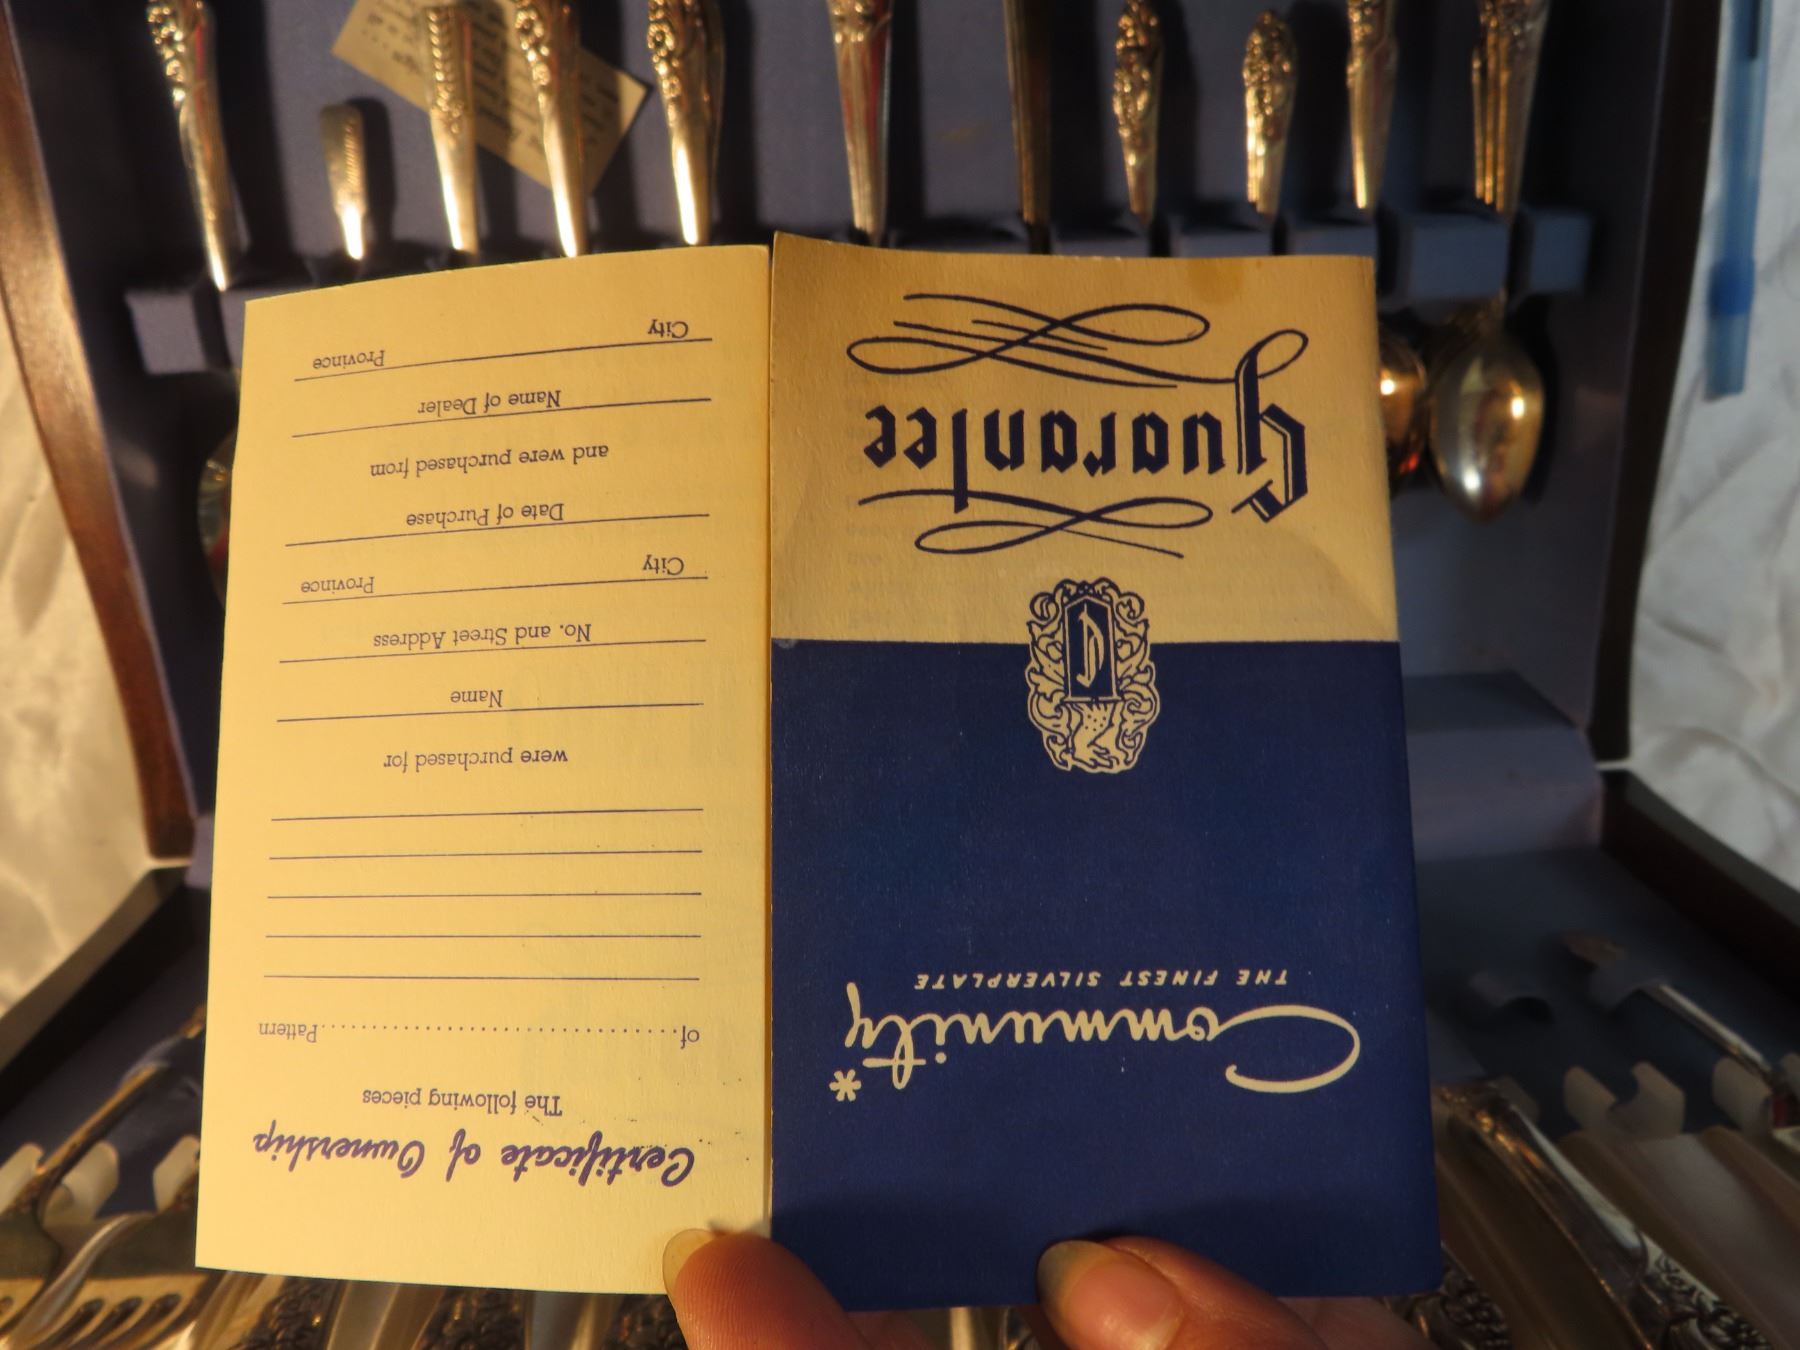 Community*
THE FINEST SILVERPLATE
C
Guarantee
Certificate of Ownership
The following pieces
of....................................Pattern
were purchased for
Name
No. and Street Address
City Province
Date of Purchase
and were purchased from
Name of Dealer
City Province